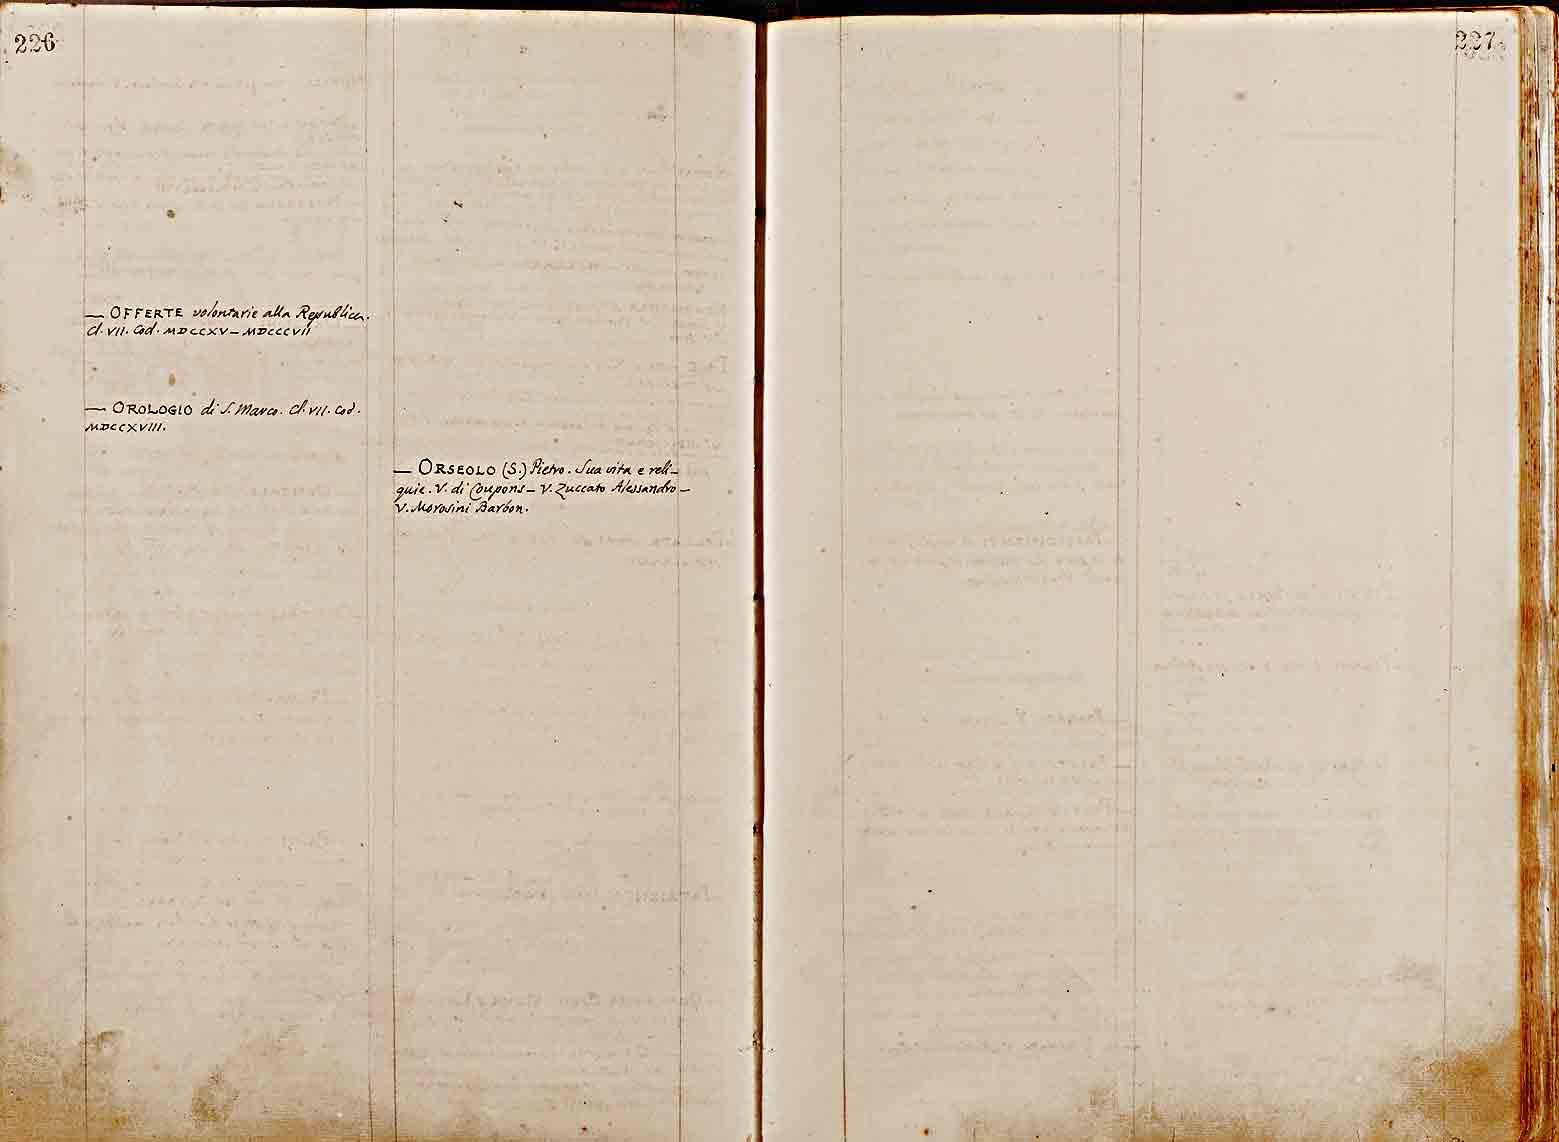 226
— OFFERTE volontarie alla Repubblica.
Cl. VII. Cod. MDCCXV — MDCCCVII
— OROLOGIO di S. Marco. Cl. VII. Cod.
MDCCXVIII.
— ORSEOLO (S.) Pietro. Sua vita e reli-
quie. V. di Coupons — V. Zuccato Alessandro —
V. Morosini Barbon.
227